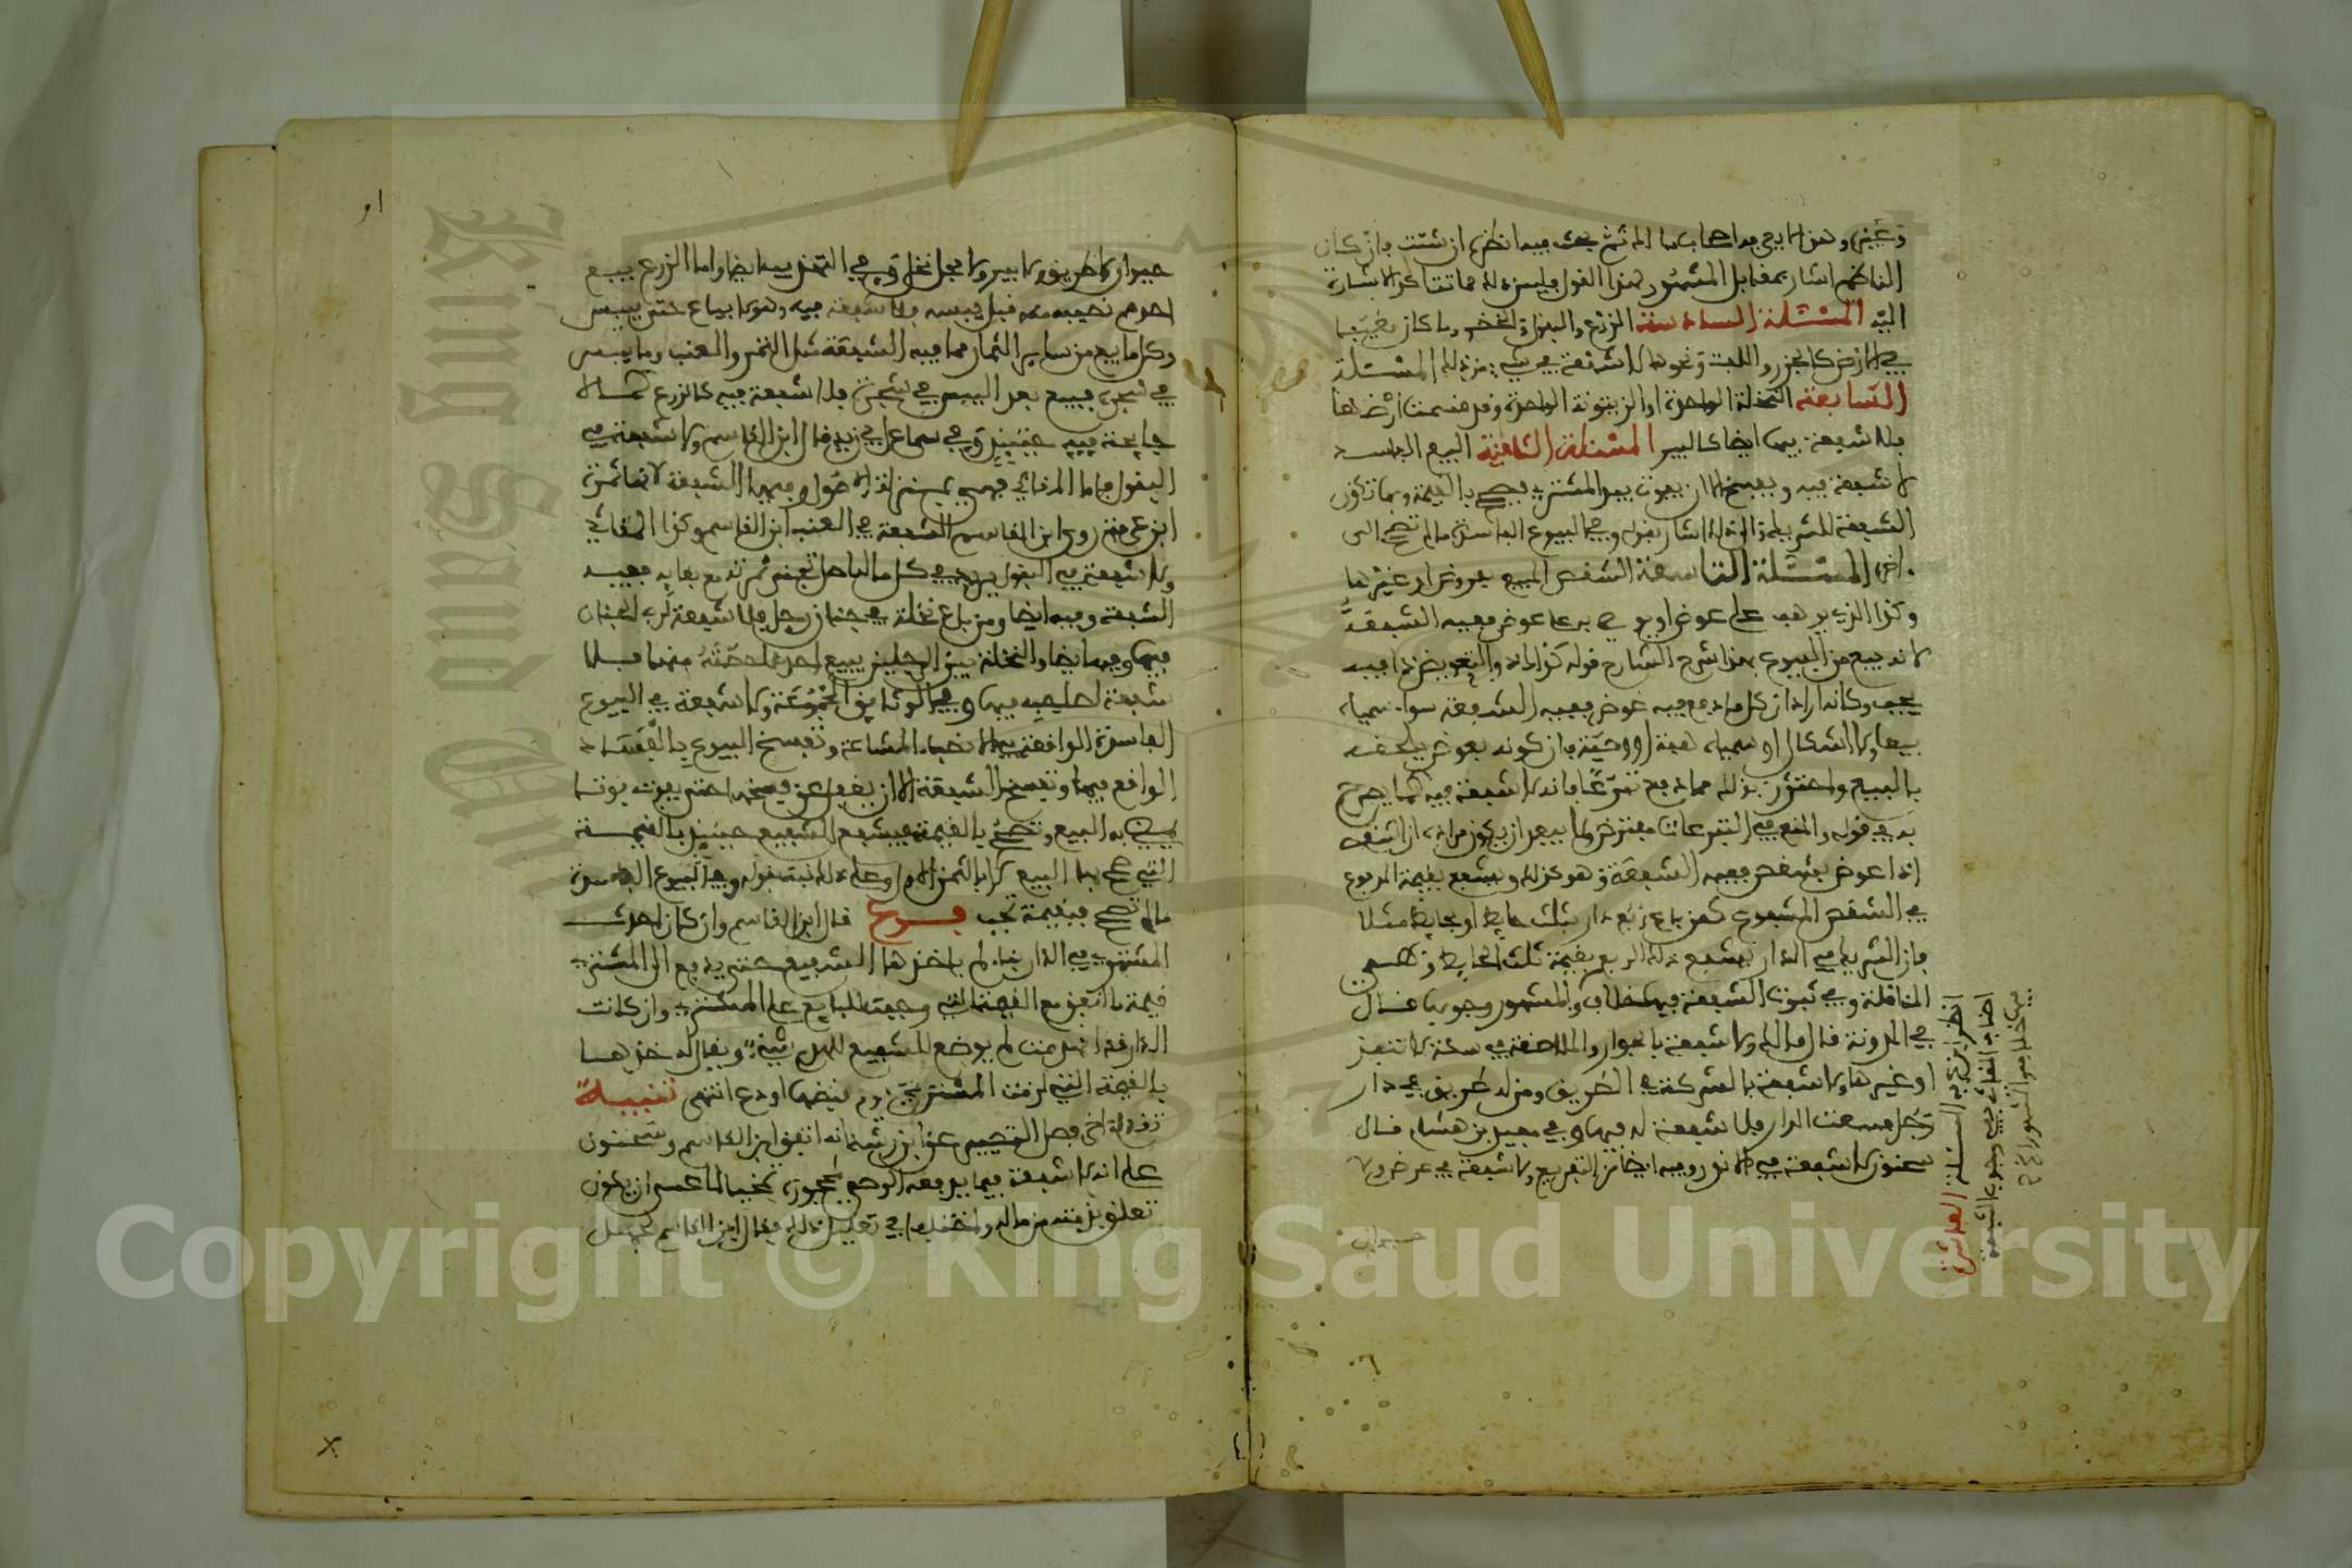 وغيره وهذا لا يرجع به اصحابها الا ثم بحث فيه انظره ان شئت فان كان
الناظم اشار بمقابل المشهور لهذا القول فليس ذلك مما تتأكد الاشارة
اليه المسئلة السادسة الزرع والبقول والخضر وما كان مغيبا
في الارض كالجزر واللفت ونحوها لا شفعة في شيء من ذلك المسئلة
السابعة النخلة الواحدة او الزيتونة الواحدة وقد قسمت ارضها
فلا شفعة فيها ايضا كالبير المسئلة الثامنة البيع الفاسد
لا شفعة فيه ويفسخ الا ان يفوت بيد المشتري فيصح بالقيمة وبها تكون
الشفعة للشريك والى ذلك اشار بقوله وفي البيوع الفاسدة ما لم تصح الى
اخره المسئلة التاسعة الشقص المبيع بعروض او غيرها
وكذا الذي يوهب على عوض او يوصى به على عوض ففيه الشفعة
لانه بيع من البيوع بهذا شرح الشارح قوله كذا ذو التعويض ذا فيه
يجب وكانه اراد ان كل ما دفع فيه عوض ففيه الشفعة سواء سمياه
بيعا ولا اشكال او سمياه هبة او وصية فان كونه بعوض يلحقه
بالبيع واحترز بذلك مما دفع تبرعا فانه لا شفعة فيه كما يصرح
به في قوله والمنع في التبرعات مفترض ولا يبعد ان يكون مراده ان الشقص
اذا عوض بشقص ففيه الشفعة وهو كذلك ويشفع بقيمة المدفوع
في الشقص المشفوع كمن باع ربع دار بثلث حايط او بحايط مثلا
فان الشريك في الدار يشفع ذلك الربع بقيمة ثلث الحايط وتسمى
المناقلة وفي ثبوت الشفعة فيها خلاف والمشهور وجوبها قال
في المدونة قال مالك ولا شفعة بالجوار والملاصقة في سكة لا تنفذ
او غيرها ولا شفعة بالشركة في الطريق ومن له طريق في دار
رجل فبيعت الدار فلا شفعة له فيها وفي مفيد بن هشام قال
سحنون لا شفعة في الاندر وفيه ايضا من التفريع ولا شفعة في عرض ولا
حيوان
حيوان ولا طريق ولا بير ولا فحل نخل وفي النخل ايضا واما الزرع يبيع
احدهم نصيبه منه قبل يبسه فلا شفعة فيه وهو لا يباع حتى ييبس
وكل ما بيع من ساير الثمار مما فيه الشفعة مثل التمر والعنب وما ييبس
في شجره فبيع بعد اليبس في شجره فلا شفعة فيه كالزرع كما لا
جايحة فيه حينئذ وفي سماع ابي زيد قال ابن القاسم ولا شفعة في
البقول واما المقاثي فهي بمنزلة الاصول وفيها الشفعة لانها ثمرة
ابن عرفة روى ابن القاسم الشفعة في العنب ابن القاسم وكذا المقاثي
ولا شفعة في البقول
الشفعة وفيه ايضا ومن باع نخلة في جنان رجل فلا شفعة لرب الجنان
فيها وفيها ايضا والنخلة بين الرجلين يبيع احدهما حصته منها فلا
شفعة لصاحبه فيها وفي الوثايق المجموعة ولا شفعة في البيوع
الفاسدة الواقعة في الانصباء المشاعة وتفسخ البيوع بالفساد
الواقع فيها وتفسخ الشفعة الا ان يغفل عن فسخها حتى يفوت فوتا
البيع وتصح بالقيمة فيشفع الشفيع حينئذ بالقيمة
التي صح بها البيع لا بالثمن الاول وعلى ذلك نبه بقوله وفي البيوع الفاسدة
ما لم تصح فبقيمة تجب فرع قال ابن القاسم وان كان احدث
المشتري في الدار بناء لم ياخذها الشفيع حتى يدفع الى المشتري
قيمة ما انفق مع القيمة التي وجبت للبايع على المشتري وان كانت
الدار قد انهدمت لم يوضع للشفيع للهدم شيء ويقال له خذها
بالقيمة التي لزمت المشتري يوم قبضها او دع انتهى تنبيه
تقدم اخر فصل التحبيس عن ابن رشد انه اتفق ابن القاسم وسحنون
على انه لا شفعة فيما يدفعه الوصي لمحجوره تحفيا لما عسى ان يكون
تعلق بذمته من ماله واختلفا في تعليل ذلك فقال ابن القاسم لجهل
انظر ابن عرفة المسئلة العاشرة
اصاب المقاثي وجوب الشفعة